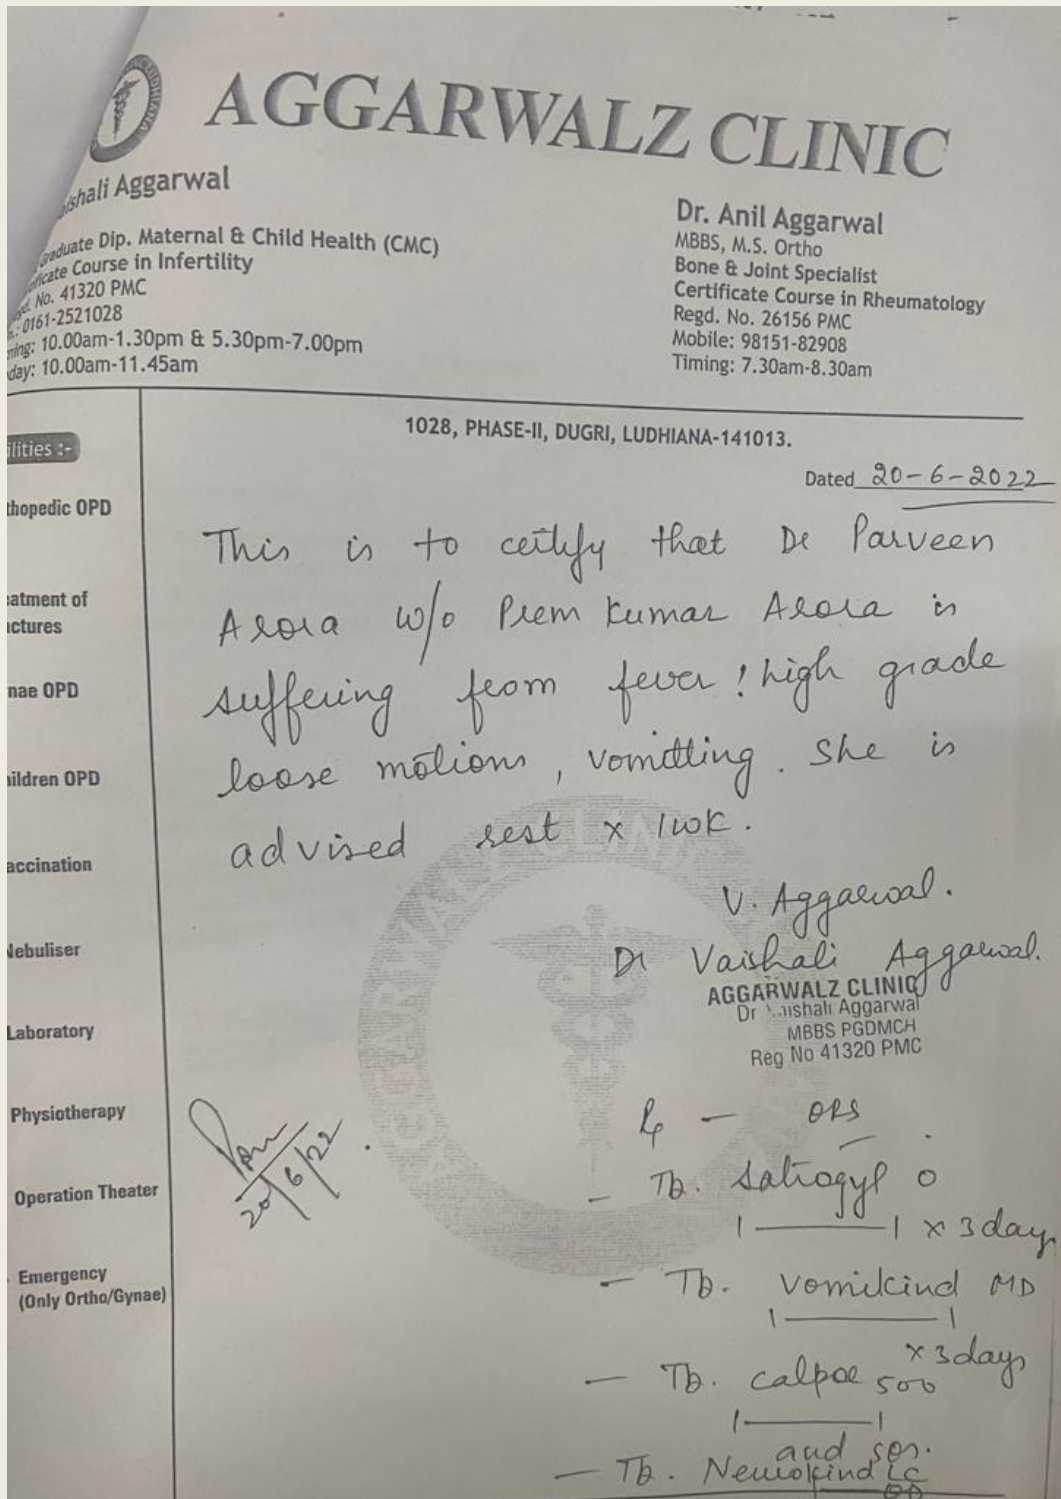 AGGARWALZ CLINIC
LUDHIANA
ishali Aggarwal
graduate Dip. Maternal & Child Health (CMC)
ificate Course in Infertility
gd. No. 41320 PMC
.: 0161-2521028
ming: 10.00am-1.30pm & 5.30pm-7.00pm
day: 10.00am-11.45am
Dr. Anil Aggarwal
MBBS, M.S. Ortho
Bone & Joint Specialist
Certificate Course in Rheumatology
Regd. No. 26156 PMC
Mobile: 98151-82908
Timing: 7.30am-8.30am
1028, PHASE-II, DUGRI, LUDHIANA-141013.
Dated 20-6-2022
ilities :-
thopedic OPD
eatment of
actures
nae OPD
hildren OPD
accination
Nebuliser
Laboratory
Physiotherapy
Operation Theater
Emergency
(Only Ortho/Gynae)
This is to certify that Dr Parveen
Arora w/o Prem Kumar Arora is
suffering from fever ! high grade
loose motions, vomitting. She is
advised rest x 1wk.
V. Aggarwal.
Dr Vaishali Aggarwal.
AGGARWALZ CLINIC
Dr Vaishali Aggarwal
MBBS PGDMCH
Reg No 41320 PMC
20/6/22
Rp - ORS
- Tb. Satrogyl O
1 — 1 x 3 days
- Tb. Vomikind MD
1 — 1
x 3 days
- Tb. calpol 500
1 — 1
and sos.
- Tb. Neurokind LC
OD
AGGARWALZ CLINIC